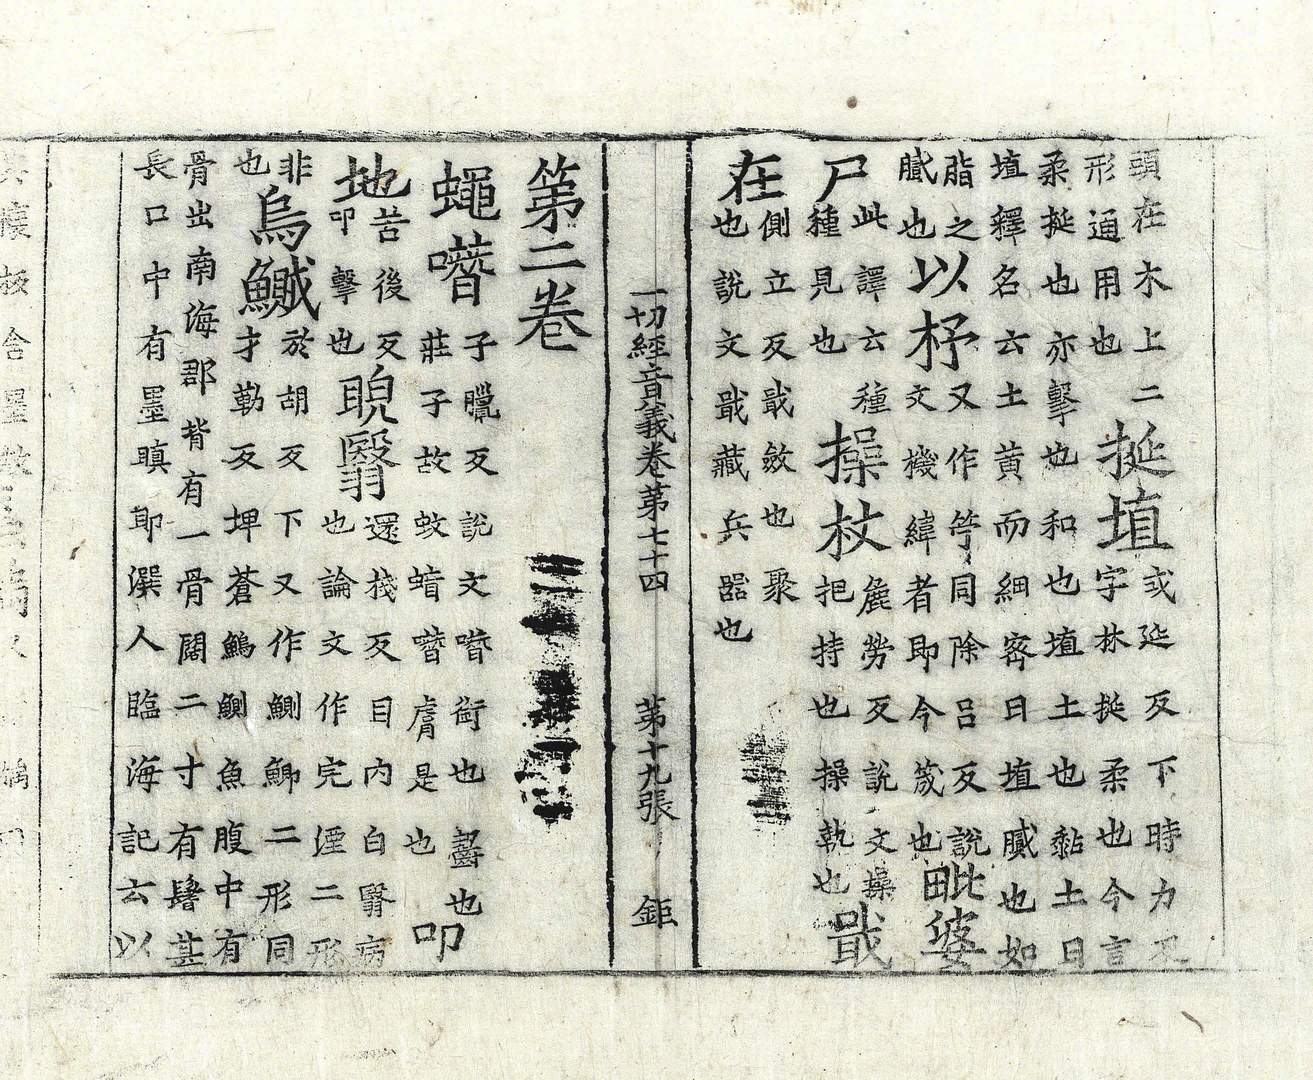 頭在木上二
形通用也
挻埴
或延反下時力反
字林挻柔也今言
柔挻也亦擊也和也埴土也黏土曰
埴釋名云土黃而細密曰埴膩也如
脂之
膩也
以杼
又作竽同除呂反說
文機緯者即今筬也
毗婆
尸
此譯云種
種見也
操杖
麁勞反說文操
把持也操執也
戢
在
側立反戢斂也聚
也說文戢藏兵器也
一切經音義卷第七十四 第十九張 鉅
第二卷
蠅噆
子臘反說文噆銜也齧也
莊子故蚊蝱噆膚是也
叩
地
苦後反
叩擊也
睨翳
還棧反目內白翳病
也論文作完湮二形
非
也
烏鰄
於胡反下又作鰂鯽二形同
才勒反埤蒼鷠鰂魚腹中有
骨出南海郡背有一骨闊二寸有鬐甚
長口中有墨瞋即潠人臨海記云以